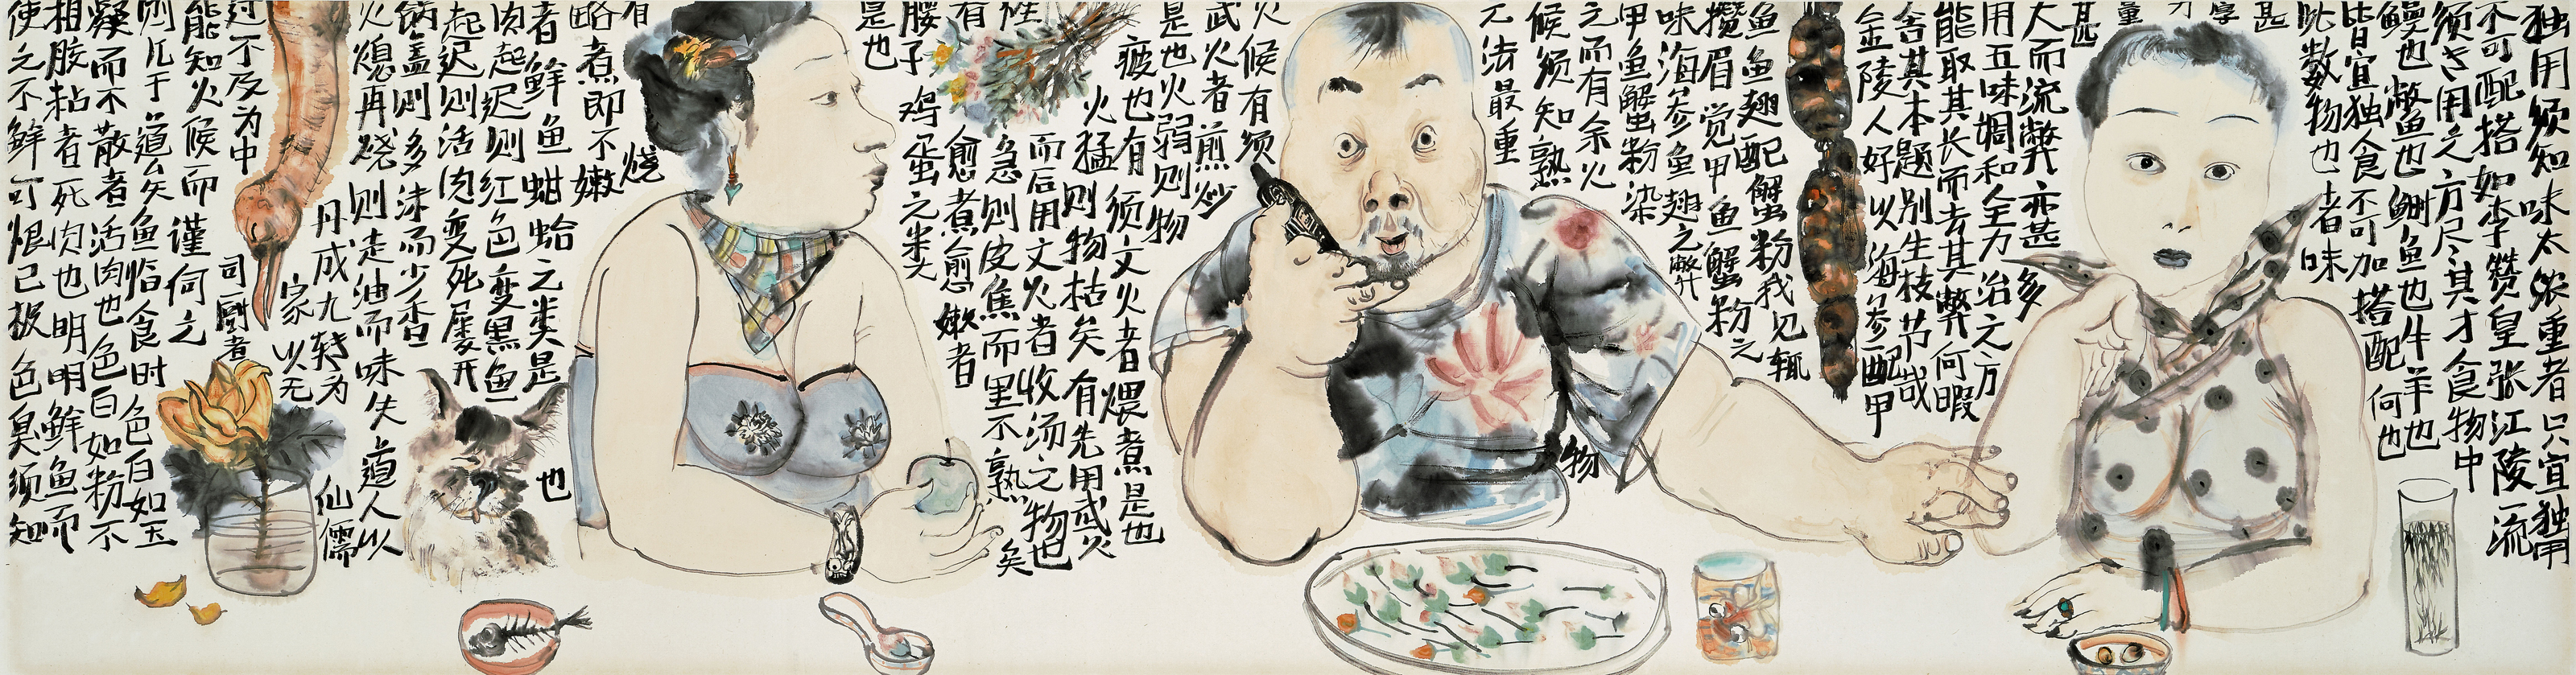 独用须知味太浓重者只宜独用
不可配搭如李赞皇张江陵一流
须专用之方尽其才食物中
鳗也鳖也鲥鱼也牛羊也
皆宜独食不可加搭配何也
此数物也者味
甚
厚
力
量
甚
大而流弊亦甚多
用五味调和全力治之方
能取其长而去其弊何暇
舍其本题别生枝节哉
金陵人好以海参配甲
鱼鱼翅配蟹粉我见辄
攒眉觉甲鱼蟹粉之
味海参鱼翅之弊
甲鱼蟹粉染
之而有余火
候须知熟
物
之法最重
火候有须
武火者煎炒
是也火弱则物
疲也有须文火者煨煮是也
火猛则物枯矣有先用武火
而后用文火者收汤之物也
性
急则皮焦而里不熟矣
有愈煮愈嫩者
腰子鸡蛋之类
是也
有
略煮即不嫩
者鲜鱼蚶蛤之类是也
烧
肉起迟则红色变黑鱼
起迟则活肉变死屡开
锅盖则多沫而少香
火熄再烧则走油而味失道人以
丹成九转为仙儒
家以无
过不及为中
司厨者
能知火候而谨何之
则几于道矣鱼临食时色白如玉
凝而不散者活肉也色白如粉不
相胶粘者死肉也明明鲜鱼而
使之不鲜可恨已极色臭须知